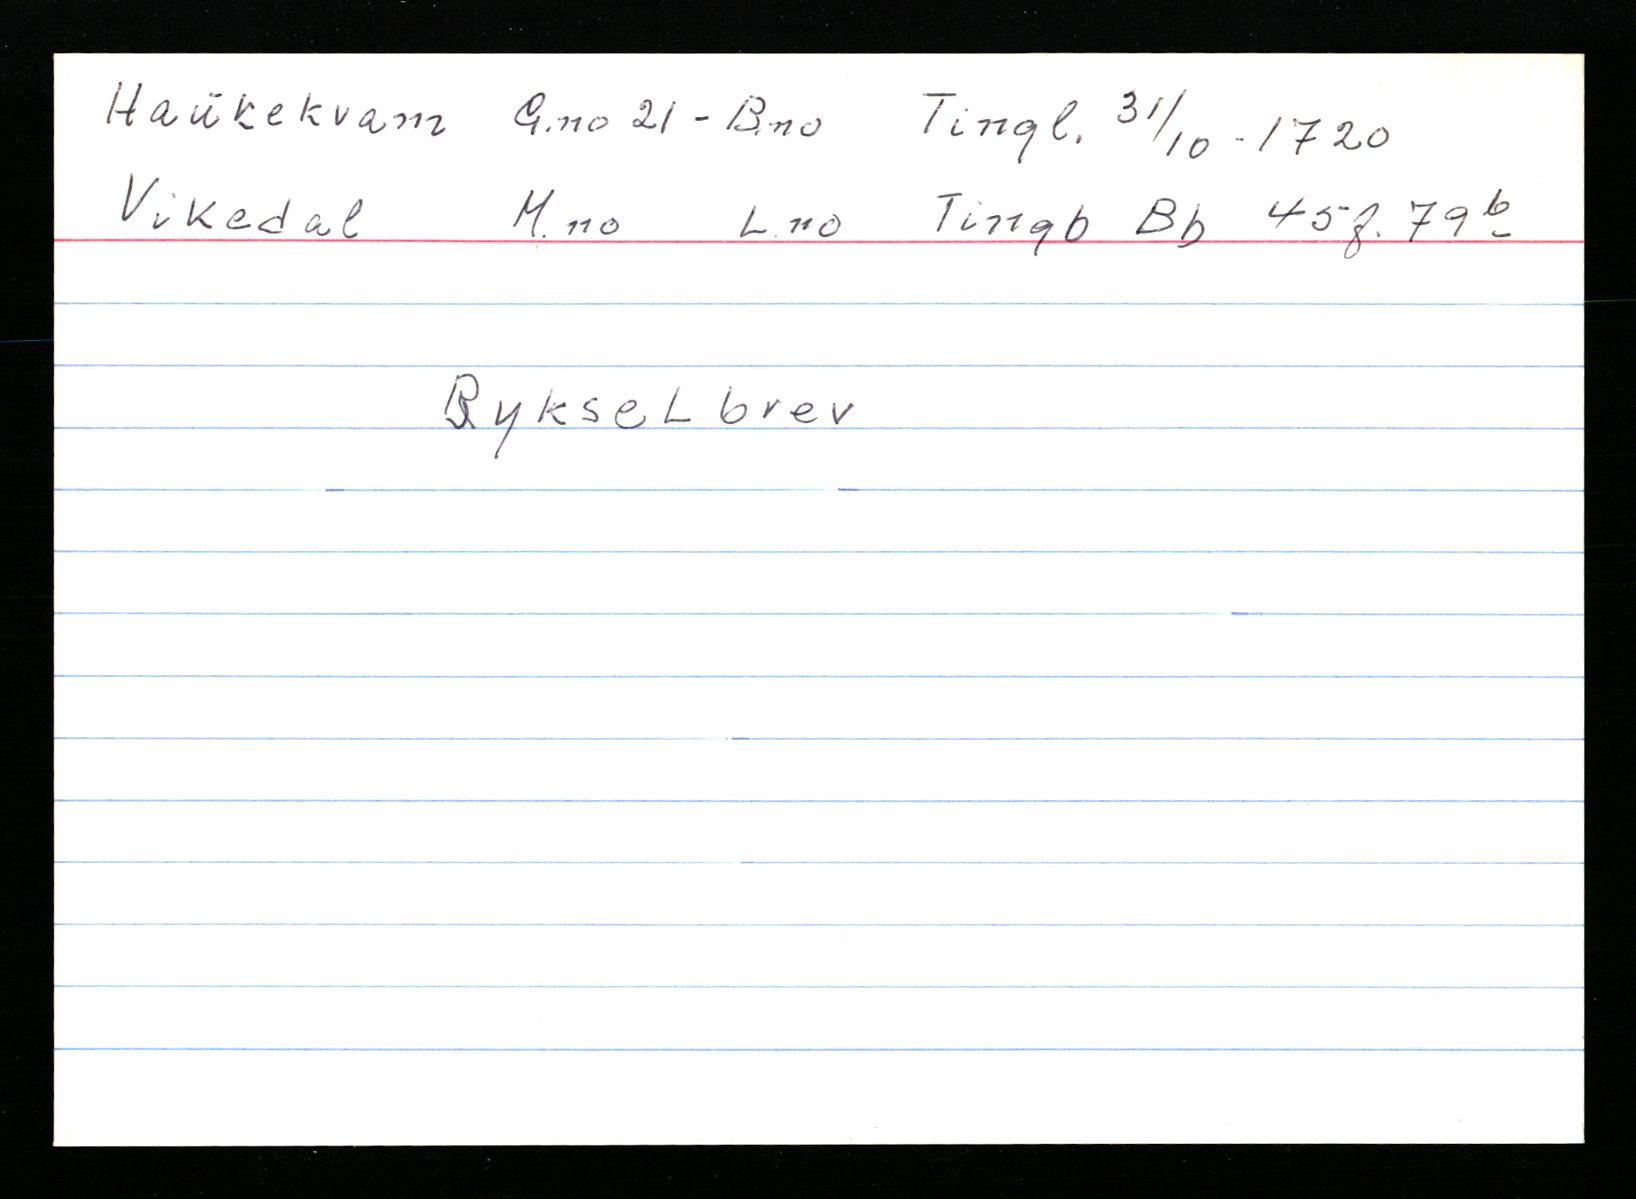 Haükekvam G.no 21 - B.no Tingl. 31/10 - 1720
Vikedal M.no L.no Tingb Bb 45 f. 79b
Bykselbrev